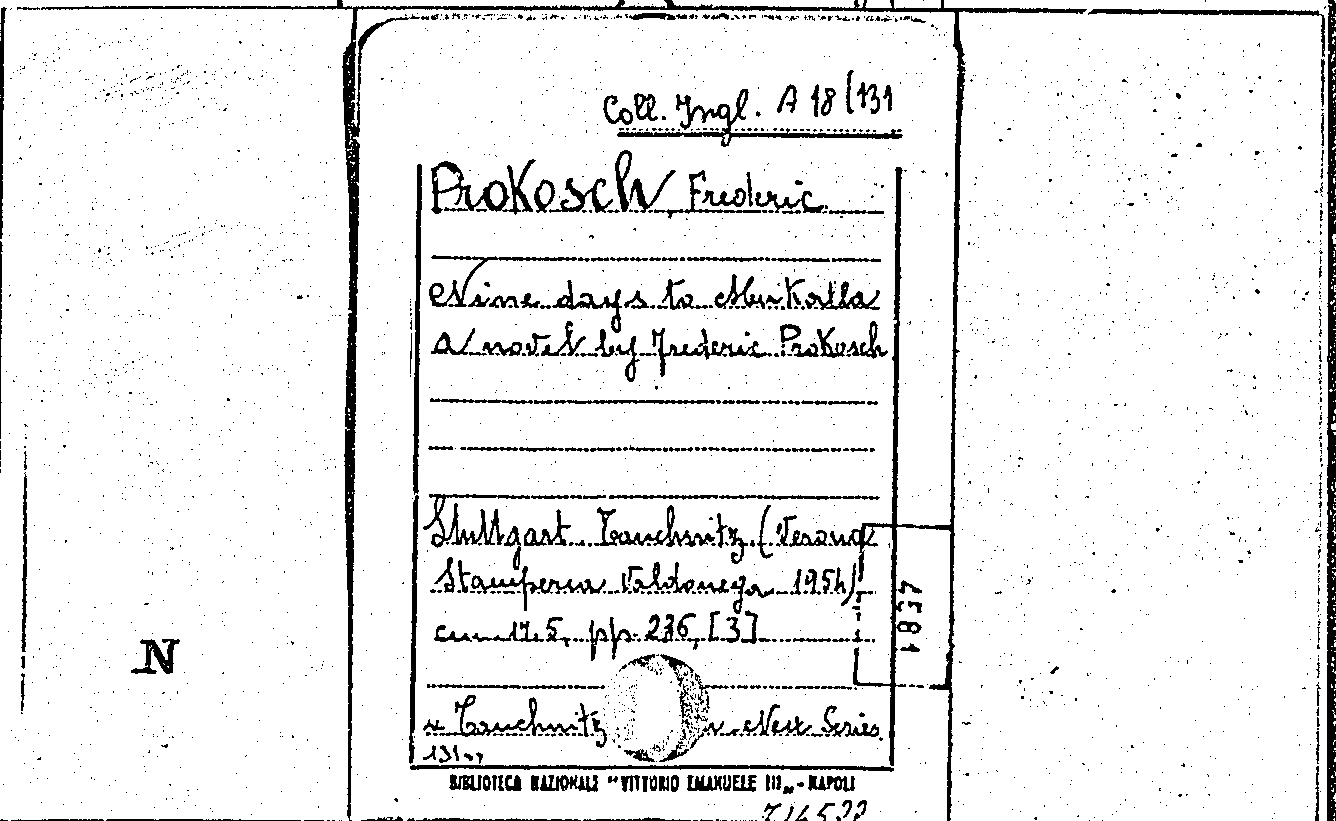 Coll. Ingl. A 18/131
Prokosch, Frederic
Nine days to Mukalla
a novel by Frederic Prokosch
Stuttgart Tauchnitz (Verona
Stamperia Valdonega 1954)
cm 17.5, pp. 236, [3]
« Tauchnitz New Series
131»
7581
N
BIBLIOTECA NAZIONALE "VITTORIO EMANUELE III„ - NAPOLI